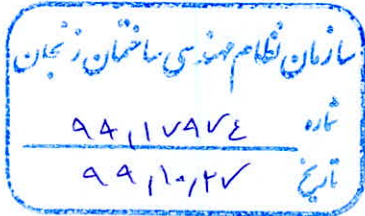 سازمان نظام مهندسی ساختمان زنجان
شماره ۹۹,۱۷۹۷۴
تاریخ ۹۹,۱۰,۲۷